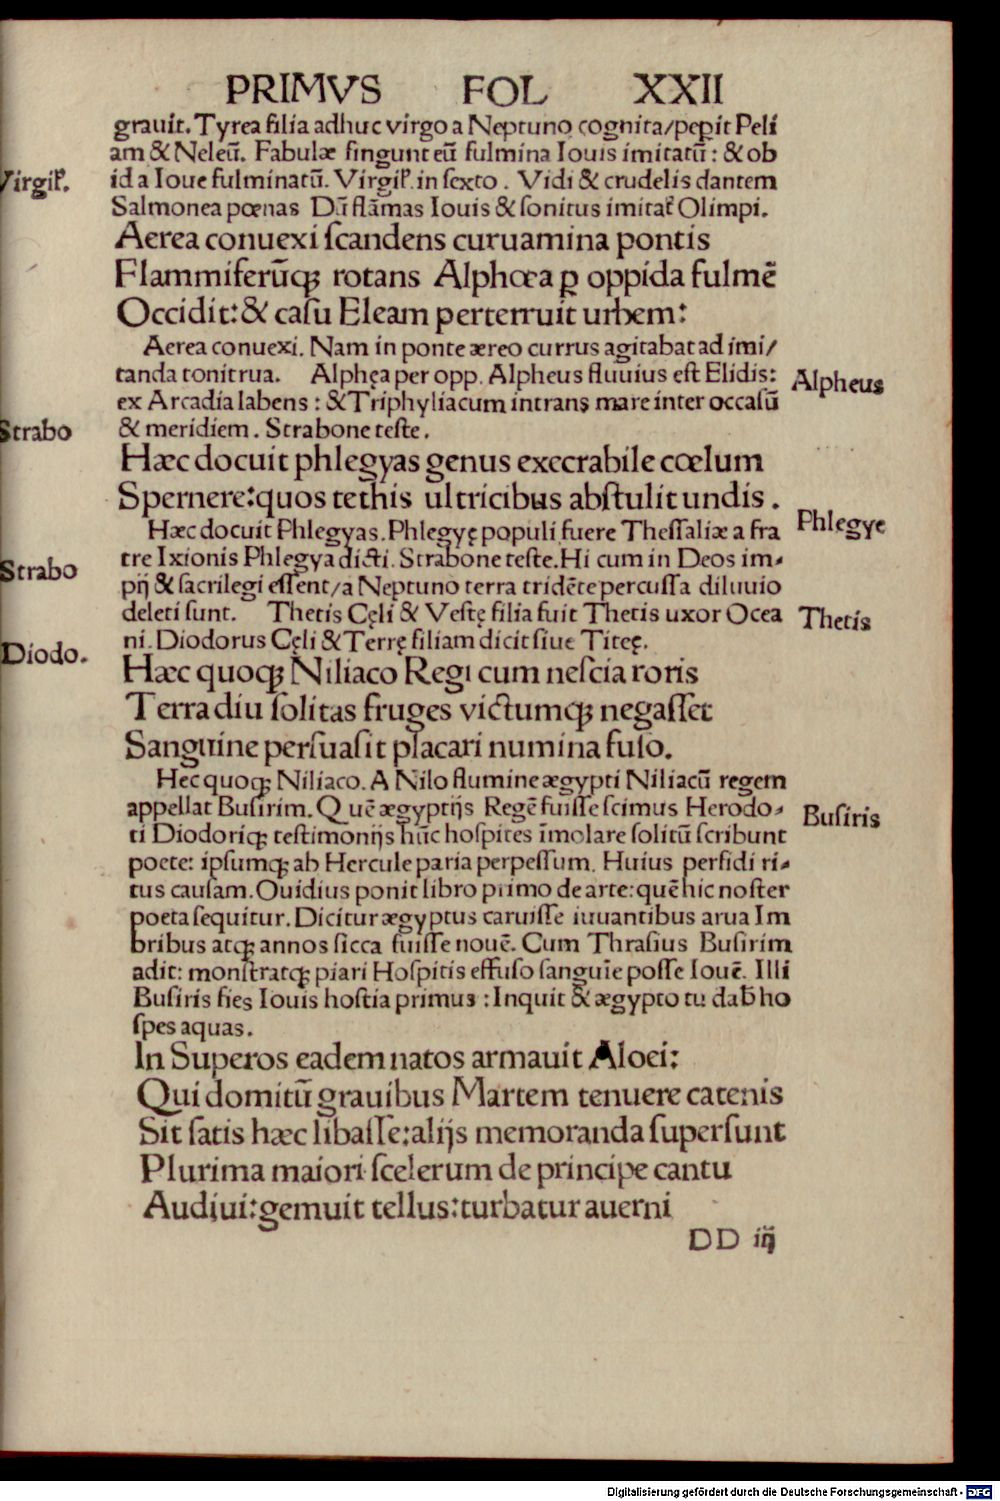 PRIMVS FOL XXII
grauit. Tyrea filia adhuc virgo a Neptuno cognita/pepit Peli
am & Neleū. Fabulæ fingunt eū fulmina Iouis imitatū: & ob
Virgil'.
id a Ioue fulminatū. Virgil'. in sexto. Vidi & crudelis dantem
Salmonea pœnas Dū flāmas Iouis & sonitus imitat' Olimpi.
Aerea conuexi scandens curuamina pontis
Flammiferūq; rotans Alphœa p oppida fulmē
Occidit: & casu Eleam perterruit urbem:
Aerea conuexi. Nam in ponte æreo currus agitabat ad imi/
tanda tonitrua. Alphęa per opp. Alpheus fluuius est Elidis:
Alpheus
ex Arcadia labens: & Triphyliacum intrans mare inter occasū
Strabo
& meridiem. Strabone teste.
Hæc docuit phlegyas genus execrabile cœlum
Spernere: quos tethis ultricibus abstulit undis.
Phlegye
Hæc docuit Phlegyas. Phlegyę populi fuere Thessaliæ a fra
tre Ixionis Phlegya dicti. Strabone teste. Hi cum in Deos im-
Strabo
pij & sacrilegi essent/a Neptuno terra tridēte percussa diluuio
deleti sunt. Thetis Cęli & Vestę filia fuit Thetis uxor Ocea
Thetis
ni. Diodorus Cęli & Terrę filiam dicit siue Titeę.
Diodo.
Hæc quoq; Niliaco Regi cum nescia roris
Terra diu solitas fruges victumq; negasset
Sanguine persuasit placari numina fuso.
Hec quoq; Niliaco. A Nilo flumine ægypti Niliacū regem
appellat Busirim. Quē ægyptijs Regē fuisse scimus Herodo-
Busiris
ti Diodoriq; testimonijs hūc hospites īmolare solitū scribunt
poete: ipsumq; ab Hercule paria perpessum. Huius perfidi ri-
tus causam. Ouidius ponit libro primo de arte: quē hic noster
poeta sequitur. Dicitur ægyptus caruisse iuuantibus arua Im
bribus atq; annos sicca fuisse nouē. Cum Thrasius Busirim
adit: monstratq; piari Hospitis effuso sanguīe posse Iouē. Illi
Busiris fies Iouis hostia primus: Inquit & ægypto tu dab' ho
spes aquas.
In Superos eadem natos armauit Aloei:
Qui domitū grauibus Martem tenuere catenis
Sit satis hæc libasse: alijs memoranda supersunt
Plurima maiori scelerum de principe cantu
Audiui: gemuit tellus: turbatur auerni
DD iij
Digitalisierung gefördert durch die Deutsche Forschungsgemeinschaft - DFG